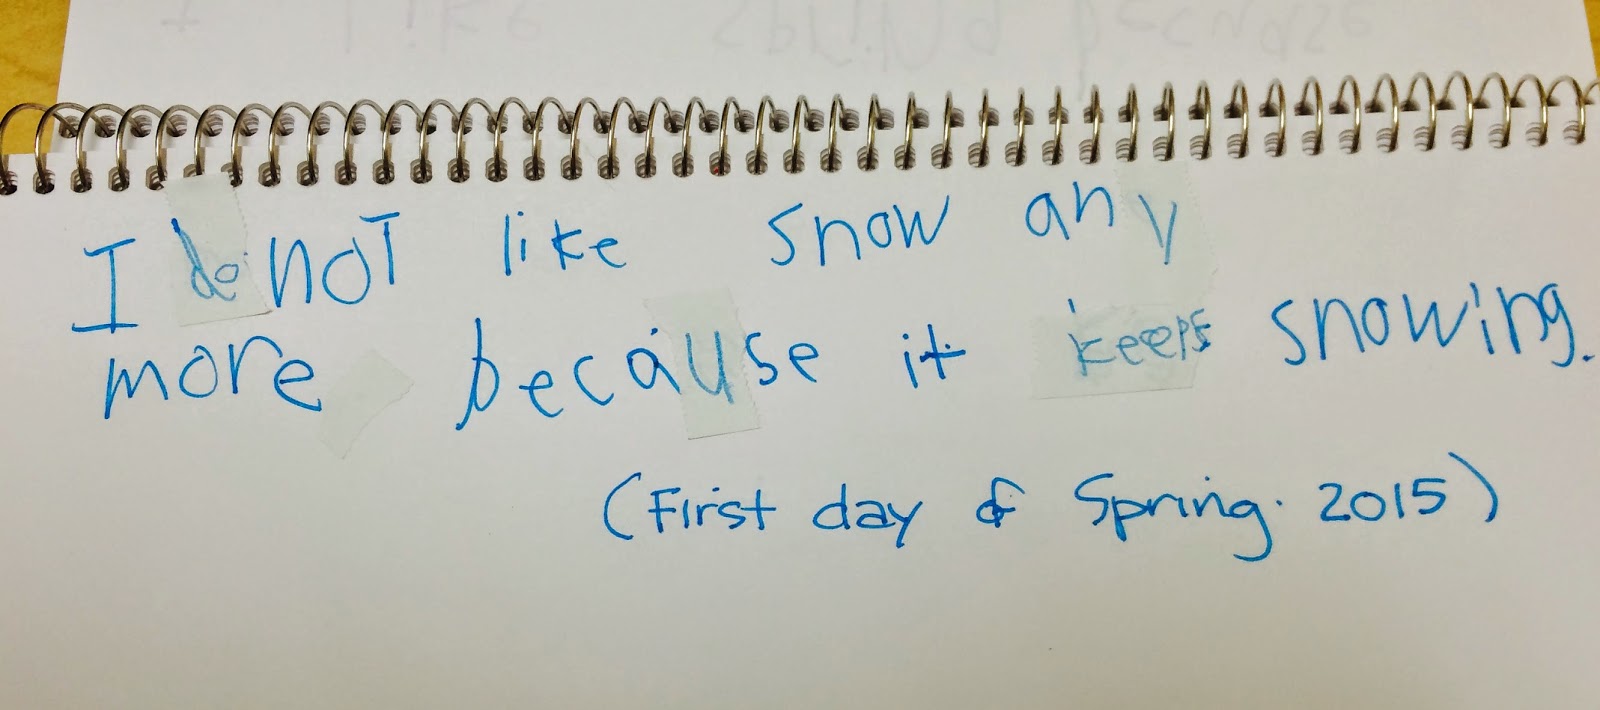 I like spring because
I do not like snow any
more because it keeps snowing.
(First day of Spring. 2015)